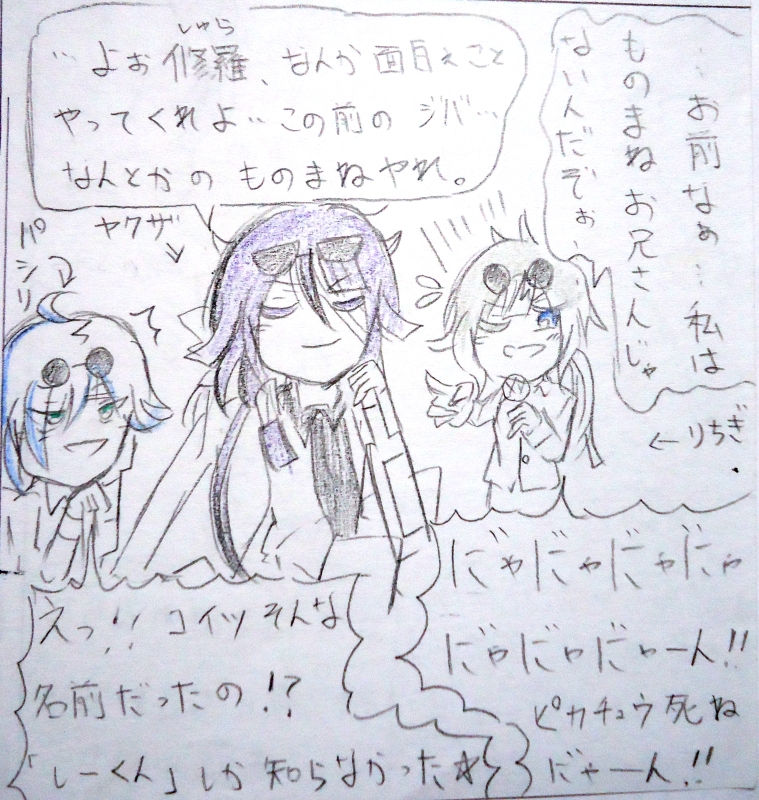 …お前なぁ…私は
ものまねお兄さんじゃ
ないんだぞぉ…
しゅら
…よぉ修羅、なんか面白えこと
やってくれよ…この前のジバ…
なんとかのものまねヤれ。
ヤクザ
パシリ
←りちぎ
にゃにゃにゃにゃ
にゃにゃにゃーん!!
ピカチュウ死ね
にゃーん!!
えっ!!コイツそんな
名前だったの!?
「しーくん」しか知らなかった